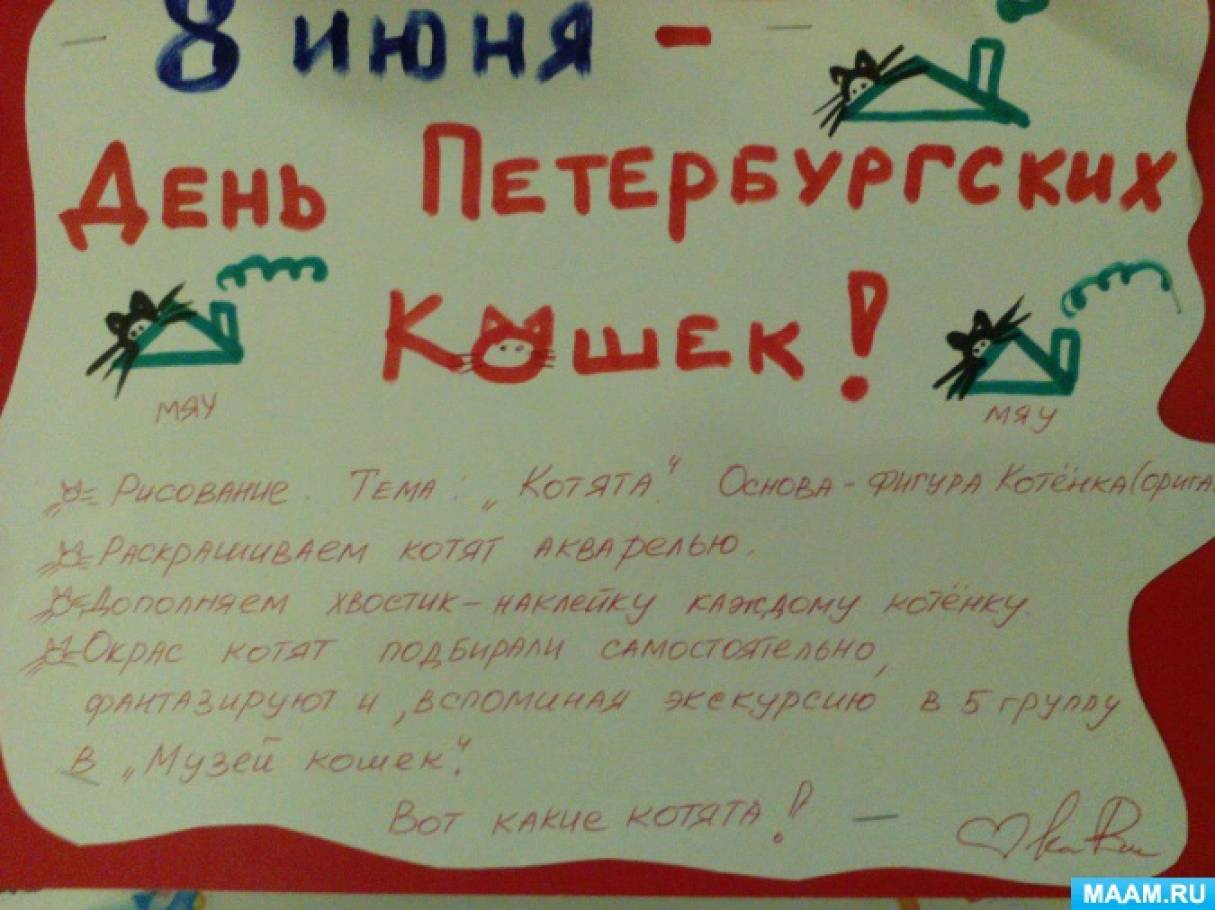 8 июня -
День Петербургских
Кошек!
мяу
мяу
Рисование. Тема: „Котята" Основа - фигура Котёнка (орига
Раскрашиваем котят акварелью.
Дополняем хвостик - наклейку каждому котёнку.
Окрас котят подбирали самостоятельно,
фантазируют и, вспоминая экскурсию в 5 группу
в „Музей кошек".
Вот какие котята!
MAAM.RU